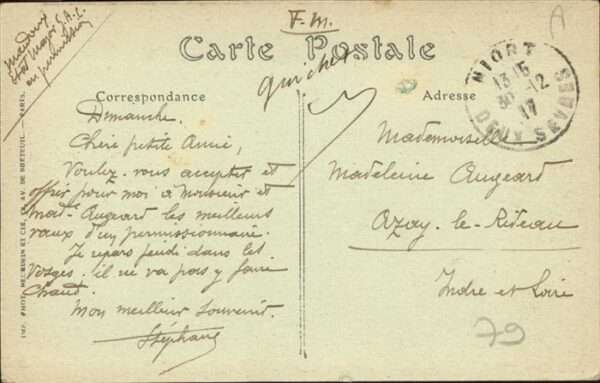 F. M.
Mardoux
Etat Major S.A.L.
en permission
Carte Postale
guichet
NIORT
13 15
30 -12
17
DEUX SEVRES
Correspondance
Adresse
Dimanche.
Chère petite Amie,
Voulez-vous accepter et
offrir pour moi à Monsieur et
Mad. Augeard les meilleurs
vœux d'un permissionnaire.
Je repars jeudi dans les
Vosges. il ne va pas y faire
Chaud.
Mon meilleur souvenir.
Stéphane
Mademoiselle
Madeleine Augeard
Azay-le-Rideau
Indre et Loire
79
IMP. PHOT. NEURDEIN ET CIE, AV. DE BRETEUIL PARIS.